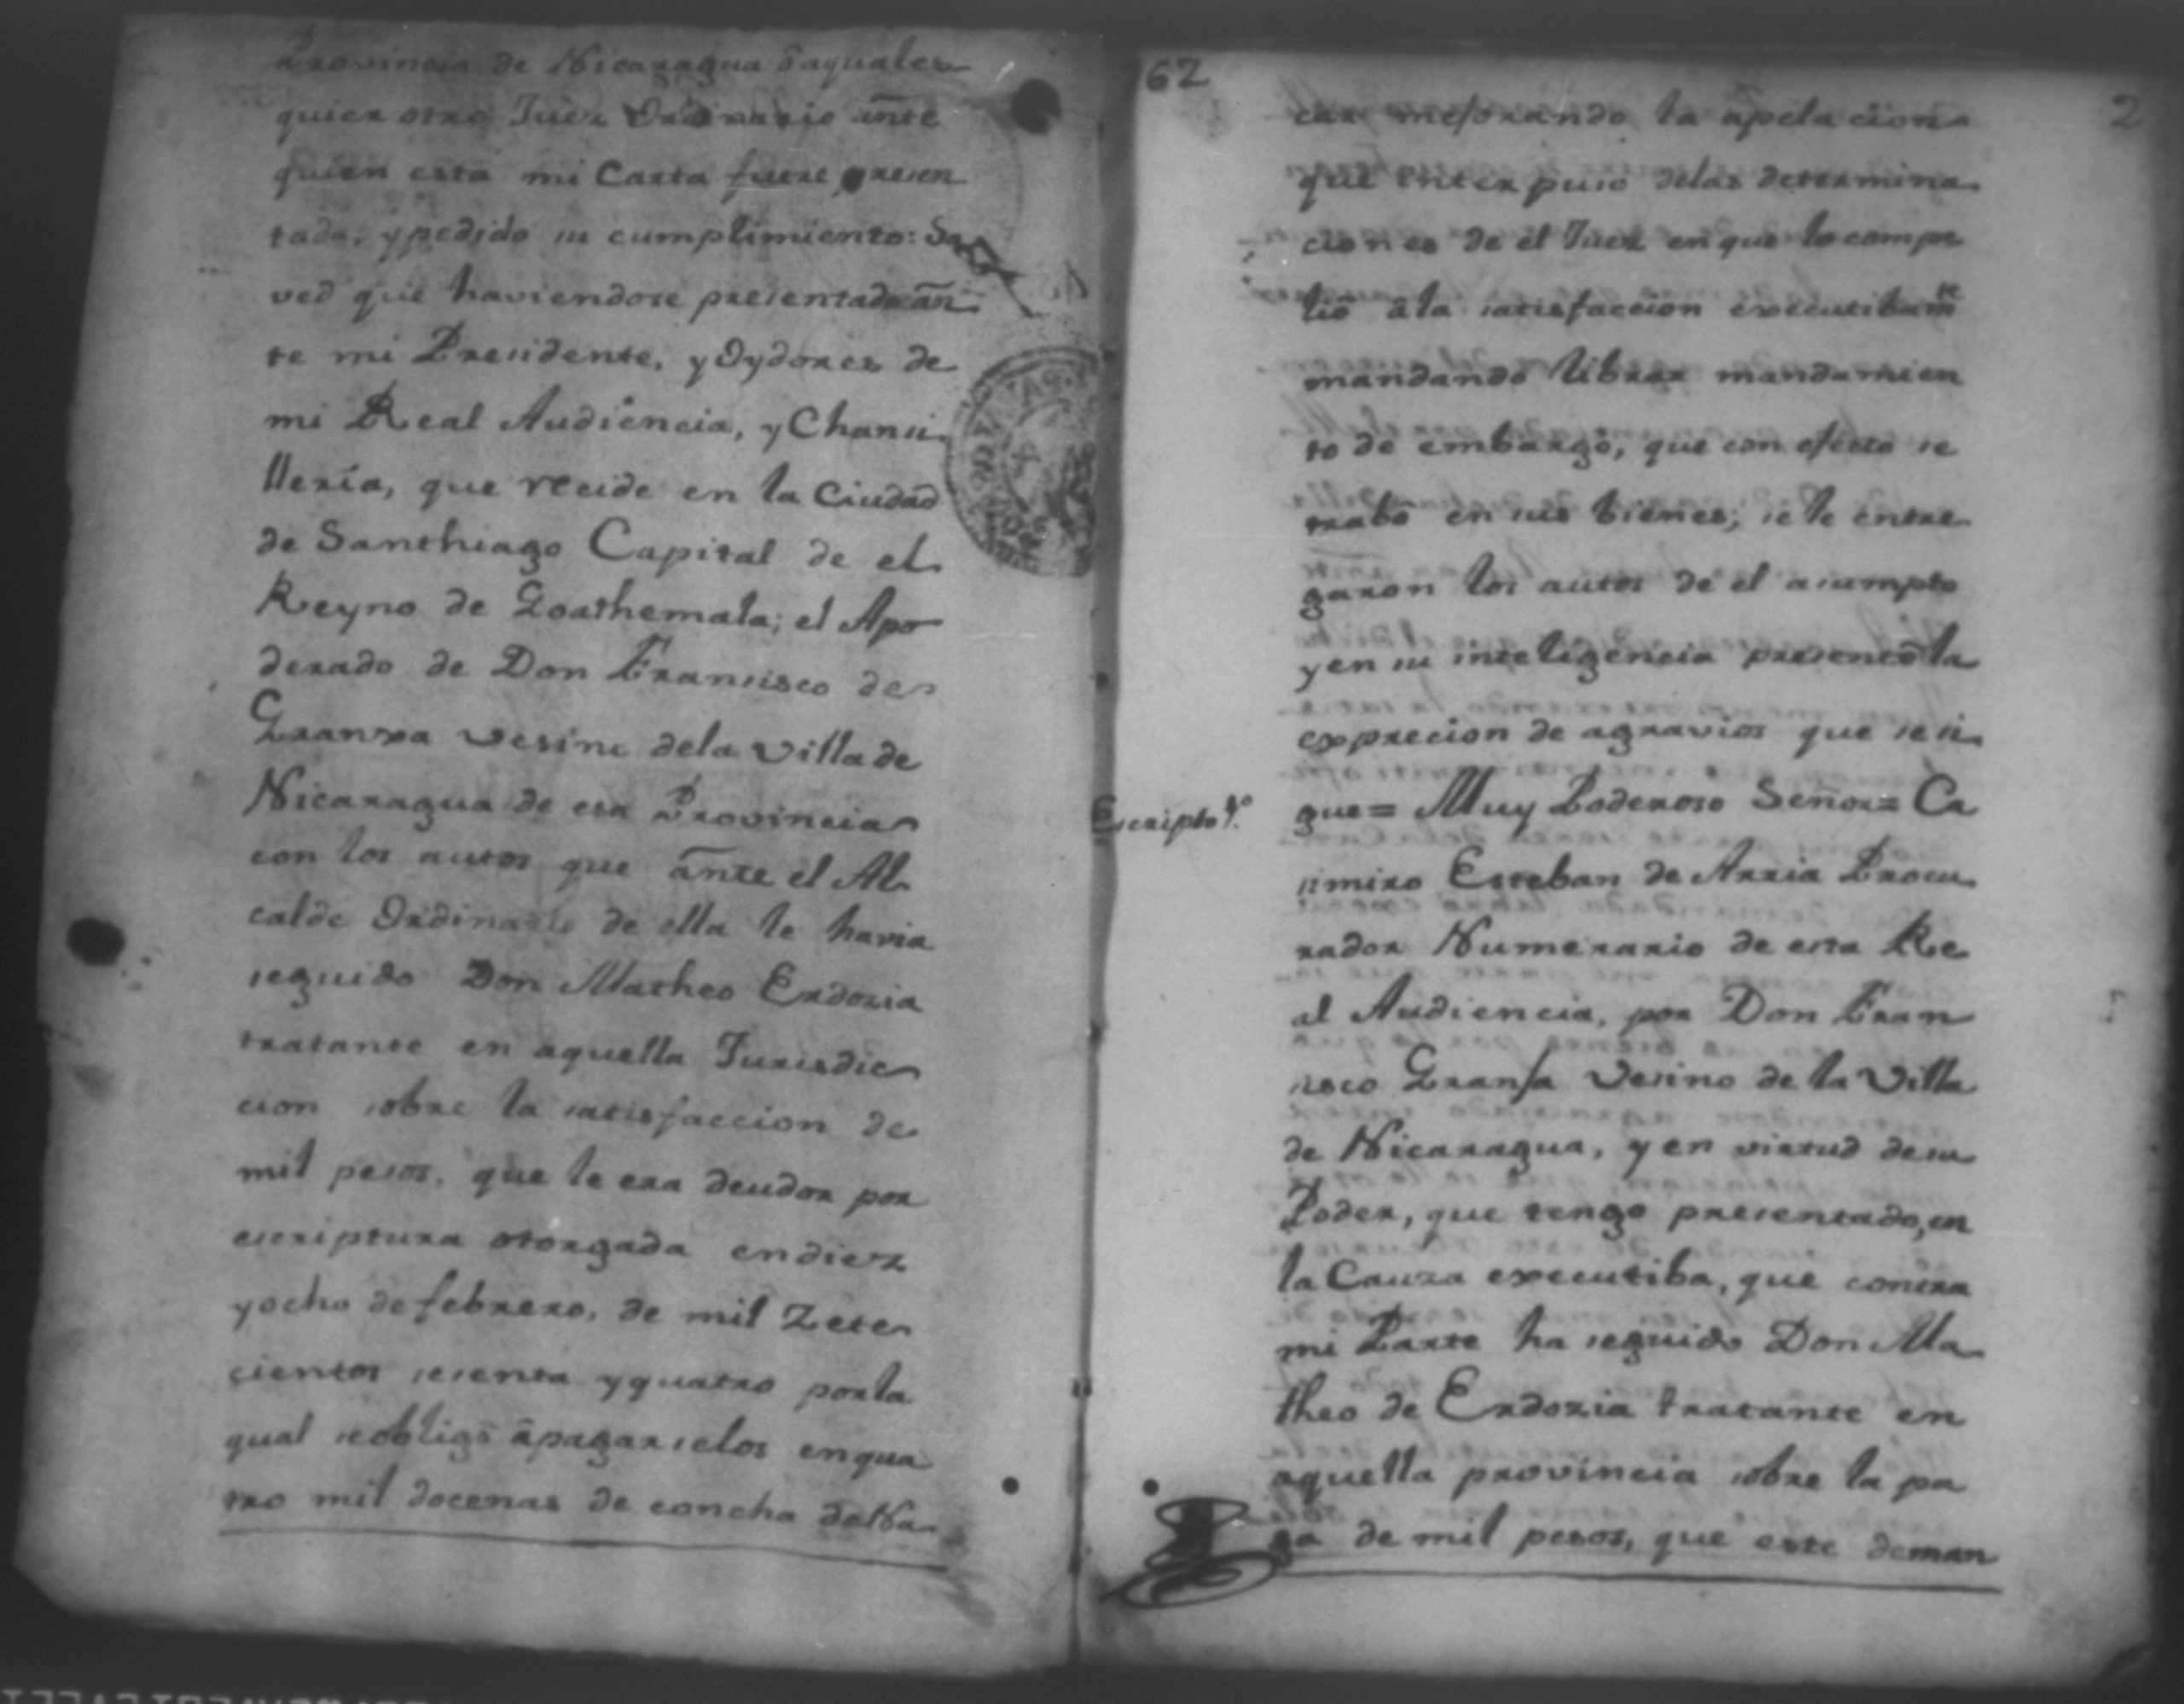 Provincia de Nicaragua ô aquales
quier otro Juez Ordinario ânte
quien esta mi Carta fuere presen
tada, y pedido su cumplimiento: Sa
ved que haviendose presentado ân
te mi Presidente, y Oydores de
mi Real Audiencia, y Chansi
lleria, que recide en la Ciudad
de Santhiago Capital de el
Reyno de Goathemala; el Apo
derado de Don Fransisco de
Granxa vesino dela Villa de
Nicaragua de esa Provincia
con los autos que ânte el Al
calde Ordinario de ella le havia
seguido Don Matheo Endozia
tratante en aquella Jurisdic
cion sobre la satisfaccion de
mil pesos, que le era deudor por
escriptura otorgada en diez
y ocho de febrero, de mil Zete
cientos sesenta y quatro por la
qual se obligô âpagarselos en qua
tro mil docenas de concha de Na
62
2
car mejorando la apelacion
que interpuso delas determina
ciones de el Juez en que lo compe
liô âla satisfaccion executibamte
mandando librar mandamien
to de embargo, que con efecto se
trabô en sus bienes; se le entre
garon los autos de el asumpto
y en su inteligencia presentô la
exprecion de agravios que se si
Escripto
gue= Muy Poderoso Señor= Ca
simiro Esteban de Arria Procu
rador Numerario de esta Re
al Audiencia, por Don Fran
sisco Granja Vesino de la Villa
de Nicaragua, y en virtud de su
Poder, que tengo presentado, en
la Cauza executiba, que contra
mi Parte ha seguido Don Ma
theo de Endozia tratante en
aquella provincia sobre la pa
ga de mil pesos, que este deman